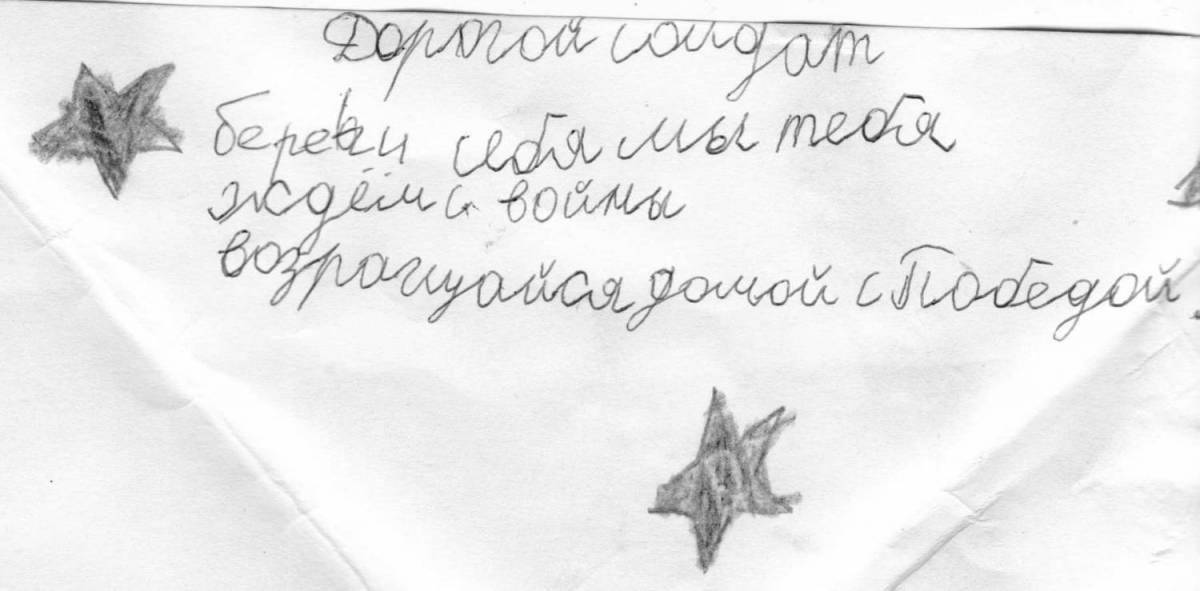 Дорогой солдат
береги себя мы тебя
ждём с войны
возращайся домой с Победой.